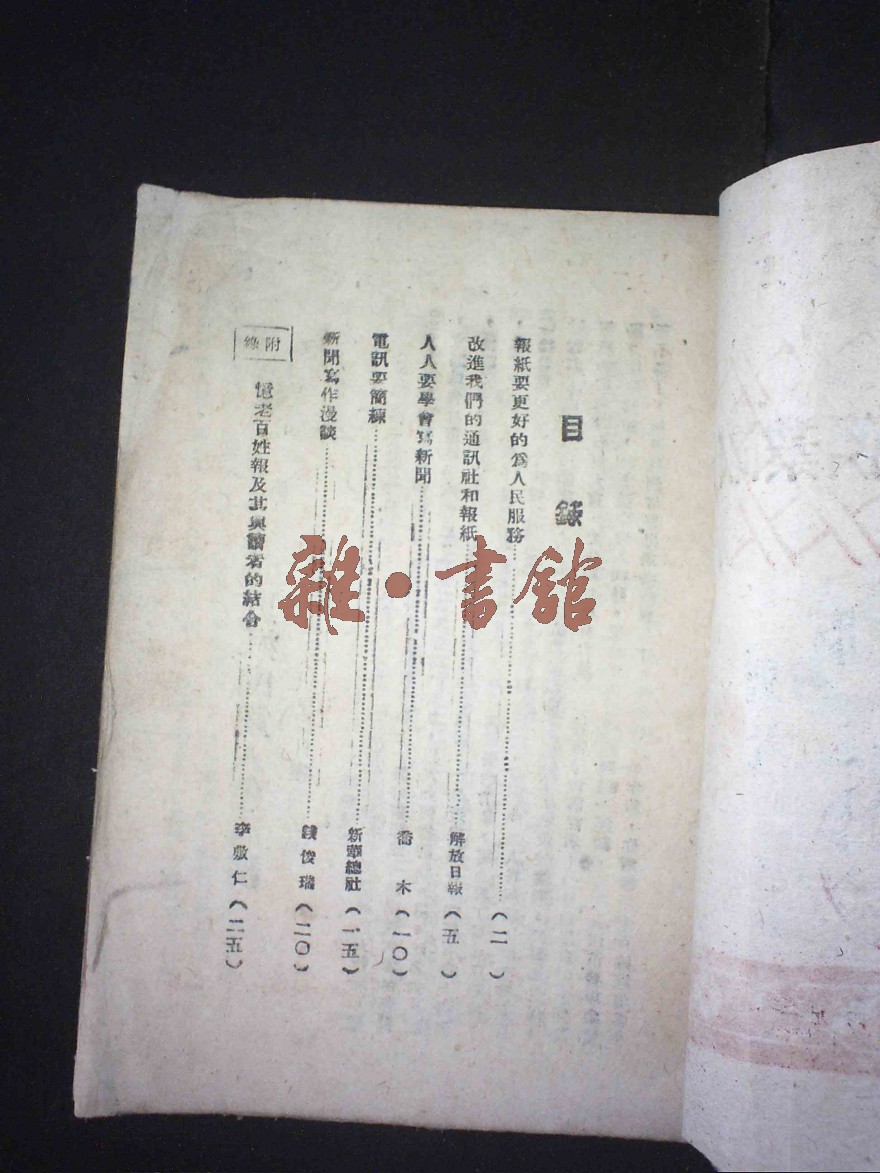 目錄
報紙要更好的爲人民服務……(二)
改進我們的通訊社和報紙……解放日報(五)
人人要學會寫新聞……喬木(一〇)
電訊要簡練……新華總社(一五)
新聞寫作漫談……錢俊瑞(二〇)
附錄
憶老百姓報及其與讀者的結合……李敷仁(二五)
雜·書館